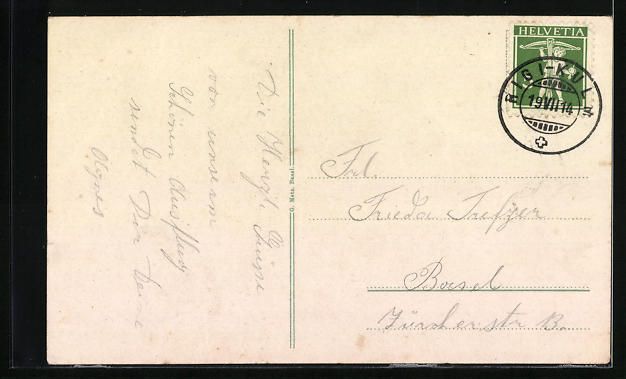 Die Herzl. Grüsse
von unserm
schönen Ausflug
sendet Dir Deine
Agnes
G. Metz, Basel.
HELVETIA
RIGI-KULM
19 VII 14
Frl.
Frieda Trefzer
Basel
Zürcherstr